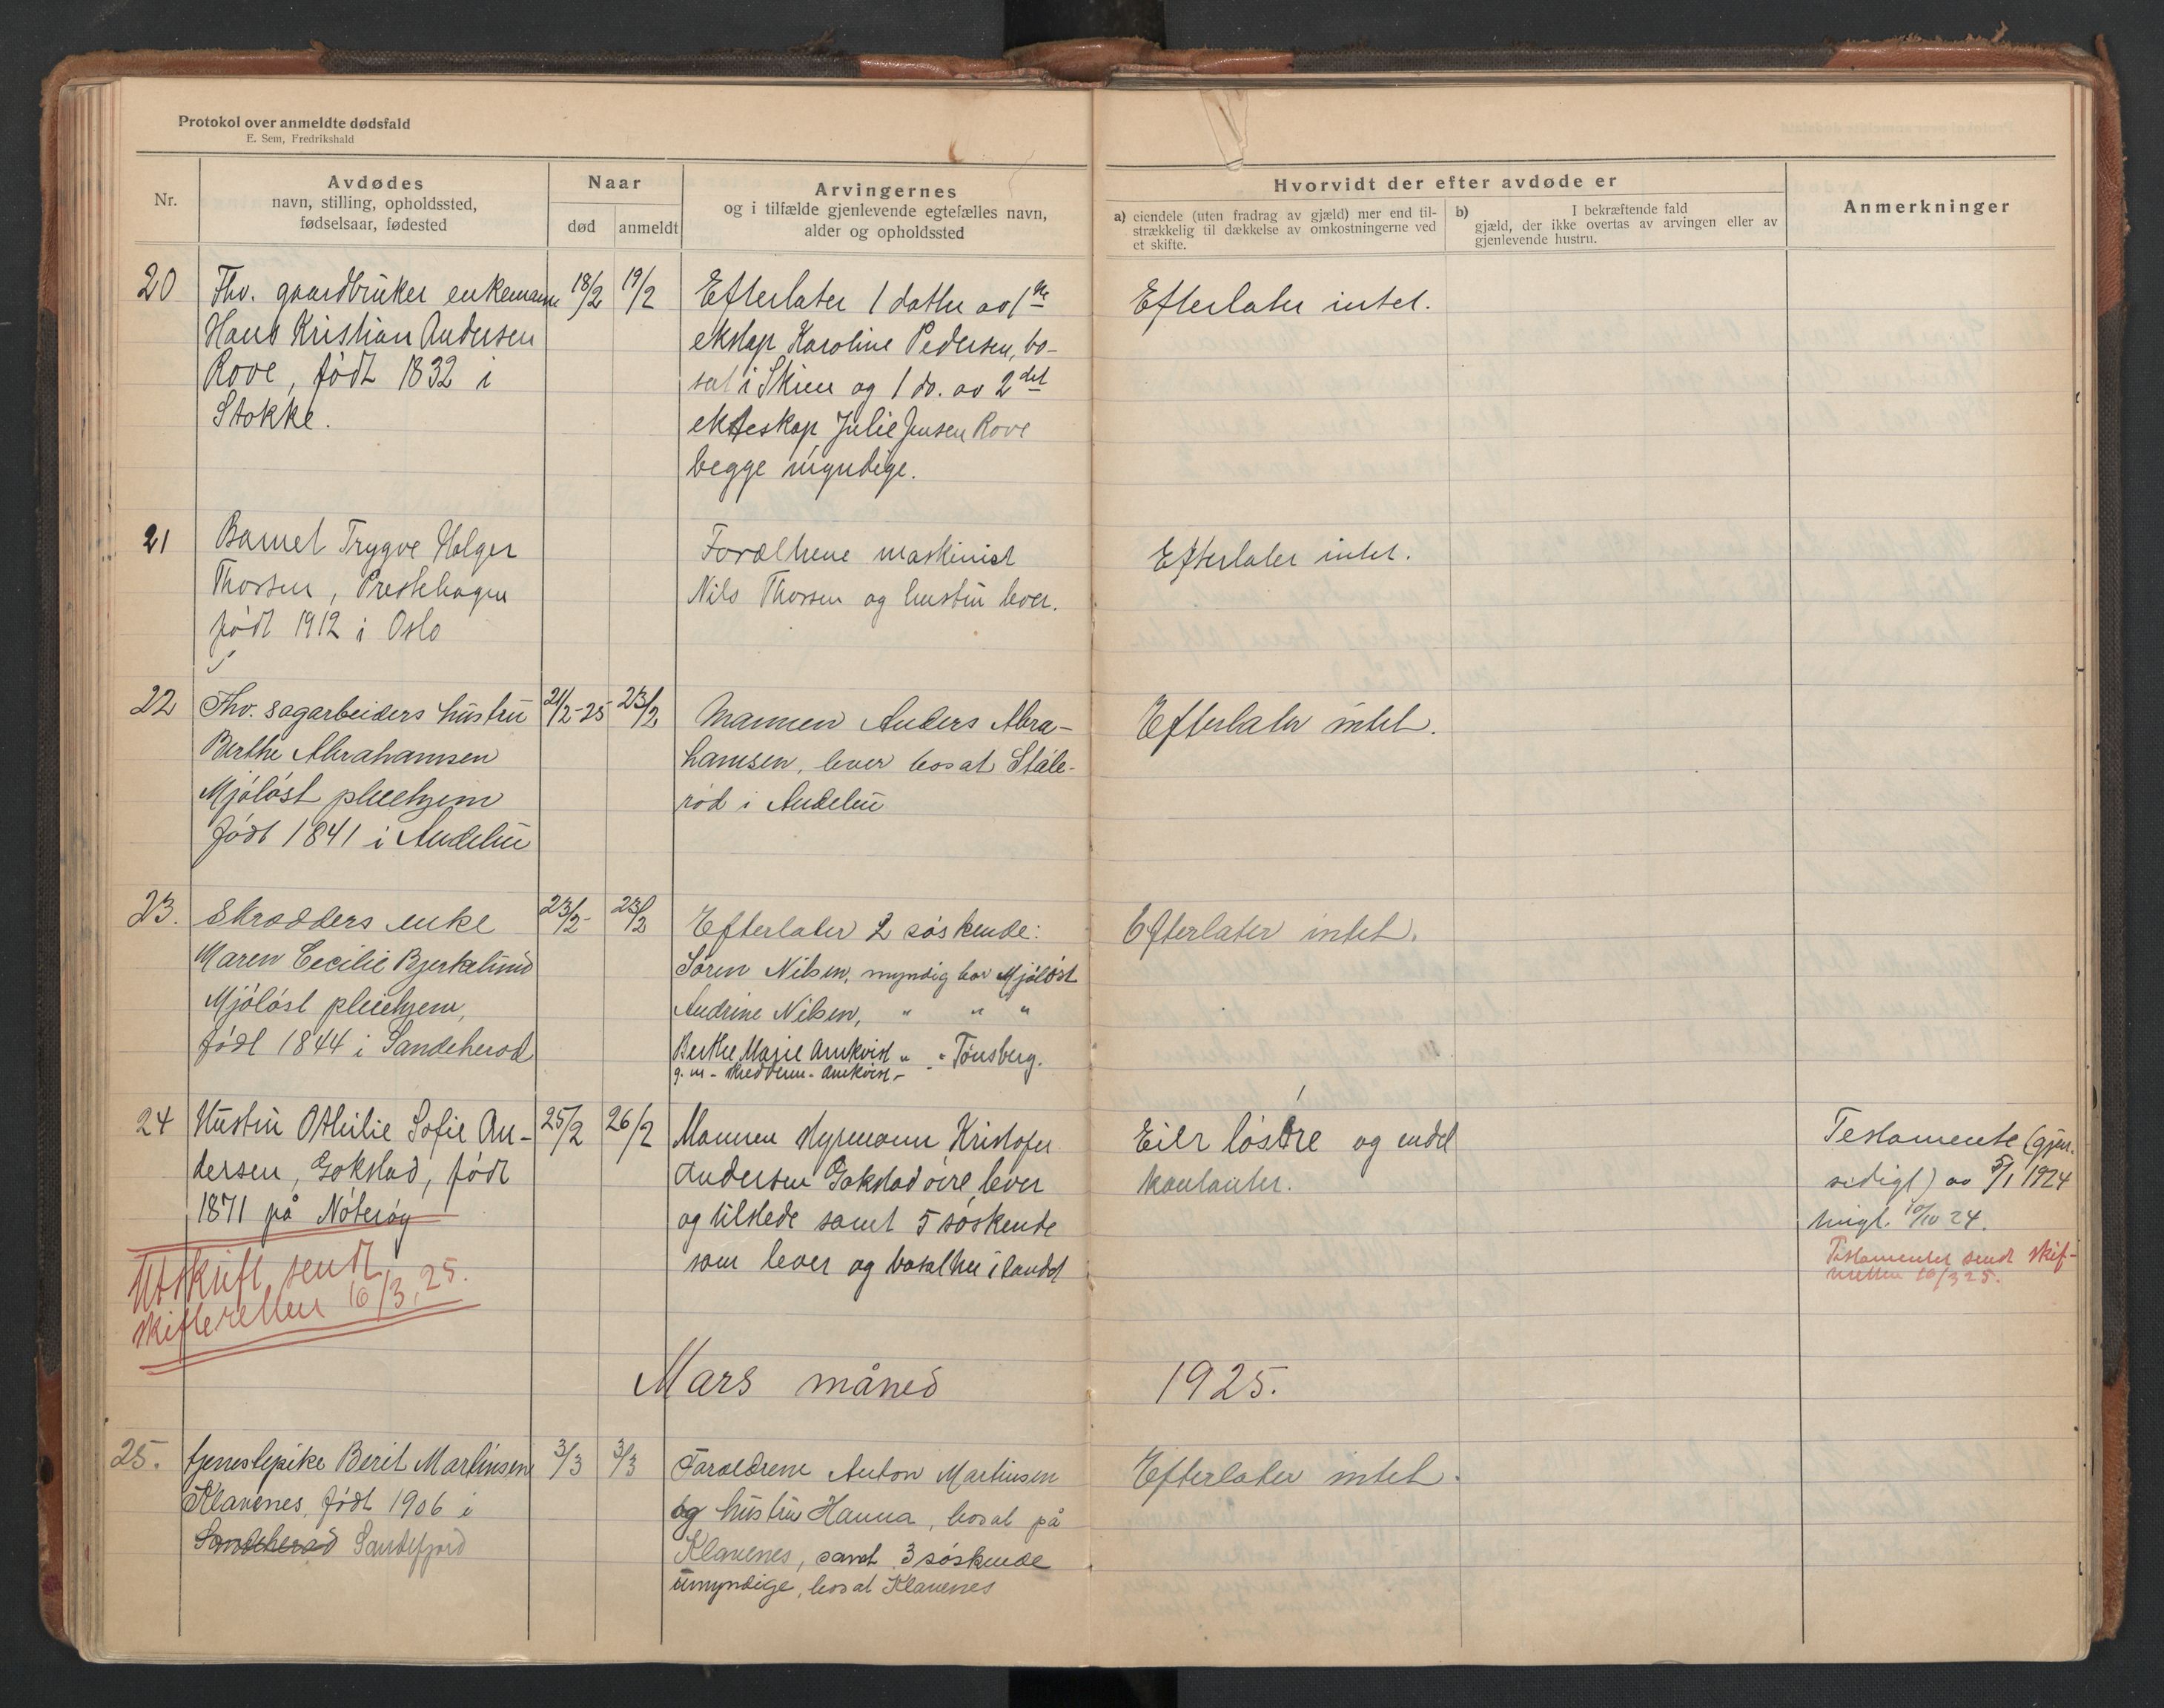 Protokol over anmeldte dødsfald
E. Sem, Fredrikshald
Nr.
Avdødes
navn, stilling, opholdssted,
fødselsaar, fødested
Naar
død
anmeldt
Arvingernes
og i tilfælde gjenlevende egtefælles navn,
alder og opholdssted
Hvorvidt der efter avdøde er
a) eiendele (uten fradrag av gjæld) mer end til-
strækkelig til dækkelse av omkostningerne ved
et skifte.
b) I bekræftende fald
gjæld, der ikke overtas av arvingen eller av
gjenlevende hustru.
Anmerkninger
20
Fhv. gaardbruker enkemann
Hans Kristian Andersen
Rove, født 1832 i
Stokke.
18/2
19/2
Efterlater 1 datter av 1ste
ekskap Karoline Pedersen, bo-
sat i Skien og 1 do. av 2det
ekteskap Julie Jensen Rove
begge myndige.
Efterlater intet.
21
Barnet Trygve Holger
Thorsen, Prestehagen
født 1912 i Oslo
Forældrene maskinist
Nils Thorsen og hustru lever.
Efterlater intet.
22
Fhv. sagarbeiders hustru
Berthe Abrahamsen
Mjøløst pleiehjem
født 1841 i Andebu
21/2-25
23/2
Mannen Anders Abra-
hamsen, lever bosat Ståle-
rød i Andebu
Efterlater intet.
23.
Skrædders enke
Maren Cecilie Bjerkelund
Mjøløst pleiehjem,
født 1844 i Sandeherad
23/2-
23/2
Efterlater 2 søskende:
Søren Nilsen, myndig bor Mjøløst
Andrine Nilsen, " " "
Berthe Marie Arnkvist " " Tønsberg.
g. m - skredderm - Arnkvist -
Efterlater intet.
24
Hustru Othilie Sofie An-
dersen, Gokstad, født
1871 på Nøterøy
25/2
26/2
Mannen styrmann Kristofer
Andersen Gokstad øvre, lever
og tilstede samt 5 søskende
som lever og bosatte i landet
Eier løsøre og endel
kontanter.
Testamente (gjen-
sidigt) av 5/1 1924
tingl. 10/10 24.
Testamentet sendt skif-
teretten 16/3 25.
Utskrift sendt
skifteretten 16/3, 25.
Mars måned 1925.
25.
tjenestepike Berit Martinsen
Klavenes, født 1906 i
Sandeherad Sandefjord
3/3
3/3
Forældrene Anton Martinsen
og hustru Hanna, bosat på
Klavenes, samt 3 søskende
umyndige, bosat Klavenes
Efterlater intet.